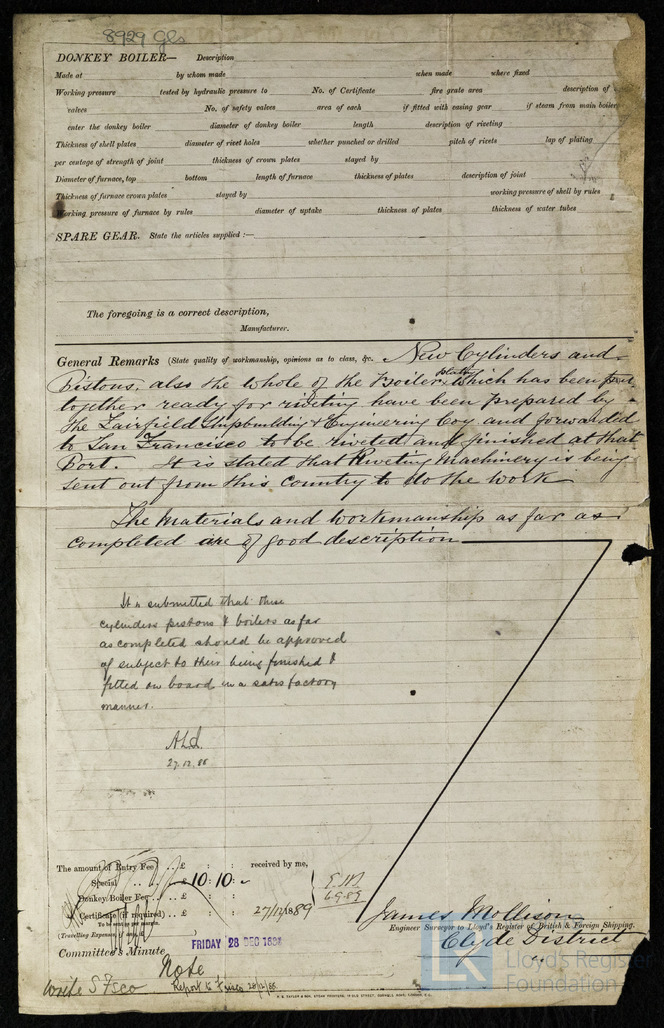 8929 Gls
DONKEY BOILER— Description
Made at by whom made when made where fixed
Working pressure tested by hydraulic pressure to No. of Certificate fire grate area description of
valves No. of safety valves area of each if fitted with easing gear if steam from main boiler
enter the donkey boiler diameter of donkey boiler length description of riveting
Thickness of shell plates diameter of rivet holes whether punched or drilled pitch of rivets lap of plating
per centage of strength of joint thickness of crown plates stayed by
Diameter of furnace, top bottom length of furnace thickness of plates description of joint
Thickness of furnace crown plates stayed by working pressure of shell by rules
Working pressure of furnace by rules diameter of uptake thickness of plates thickness of water tubes
SPARE GEAR. State the articles supplied :—
The foregoing is a correct description,
Manufacturer.
General Remarks (State quality of workmanship, opinions as to class, &c. New Cylinders and
Pistons, also the whole of the Boiler plates which has been put
together ready for riveting have been prepared by
the Fairfield Shipbuilding & Engineering Coy and forwarded
to San Francisco to be riveted and finished at that
Port. It is stated that Riveting Machinery is being
sent out from this Country to do the work
The Materials and workmanship as far as
completed are of good description
It is submitted that these
cylinders pistons & boilers as far
as completed should be approved
of subject to their being finished &
fitted on board in a satisfactory
manner.
27.12.88
The amount of Entry Fee .. £ : : received by me,
Special .. .. £ 10 : 10 : -
Donkey Boiler Fee .. £ : :
Certificate (if required) .. £ : : 27/12/1889
To be sent as per margin.
(Travelling Expenses, if any, £ )
James Mollison
Engineer Surveyor to Lloyd's Register of British & Foreign Shipping.
Clyde District
Committee's Minute
FRIDAY 28 DEC 188
Note
Write S Fsco Report to Frisco 28/12/88
Lloyd's Register
Foundation